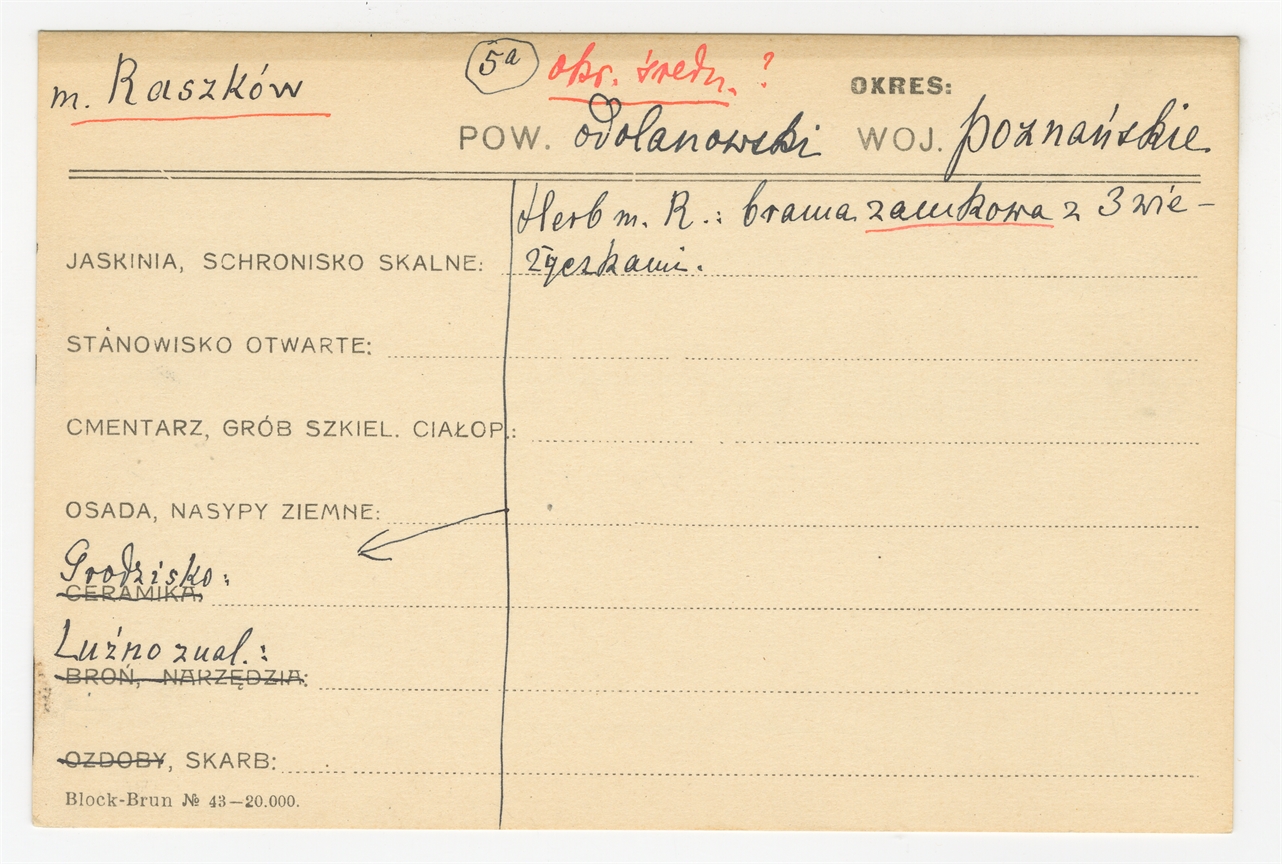 m. Raszków
5a okr. średn. ?
OKRES:
POW. odolanowski WOJ. poznańskie
Herb m. R.: brama zamkowa z 3 wie-
życzkami.
JASKINIA, SCHRONISKO SKALNE:
STANOWISKO OTWARTE:
CMENTARZ, GRÓB SZKIEL. CIAŁOP.:
OSADA, NASYPY ZIEMNE:
Grodzisko:
CERAMIKA,
Luźno znal.:
BROŃ, NARZĘDZIA:
OZDOBY, SKARB:
Block-Brun № 43—20.000.